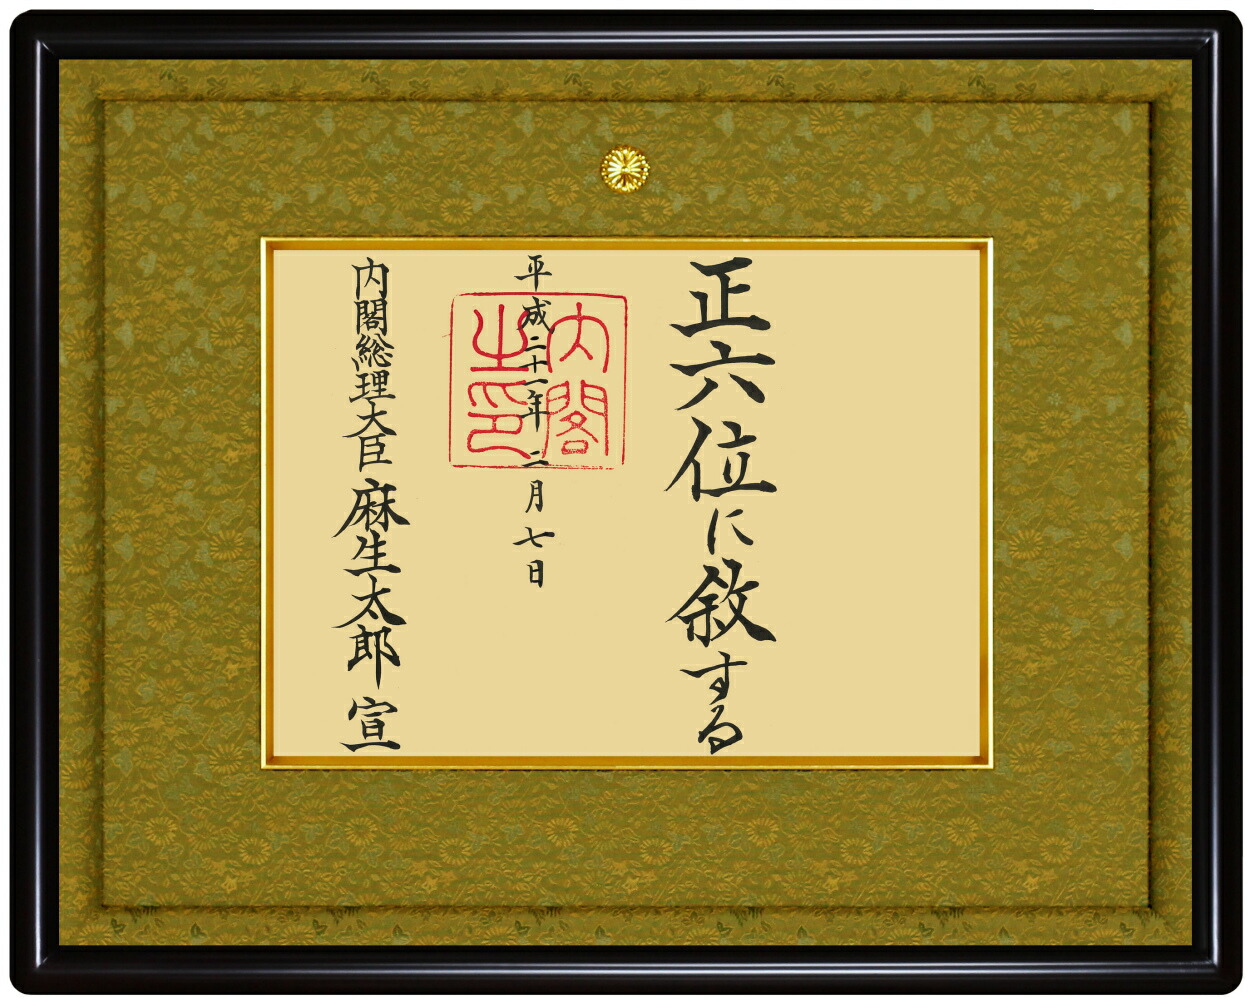 正六位に敘する
平成二十一年二月七日
内閣之印
内閣総理大臣 麻生太郎 宣